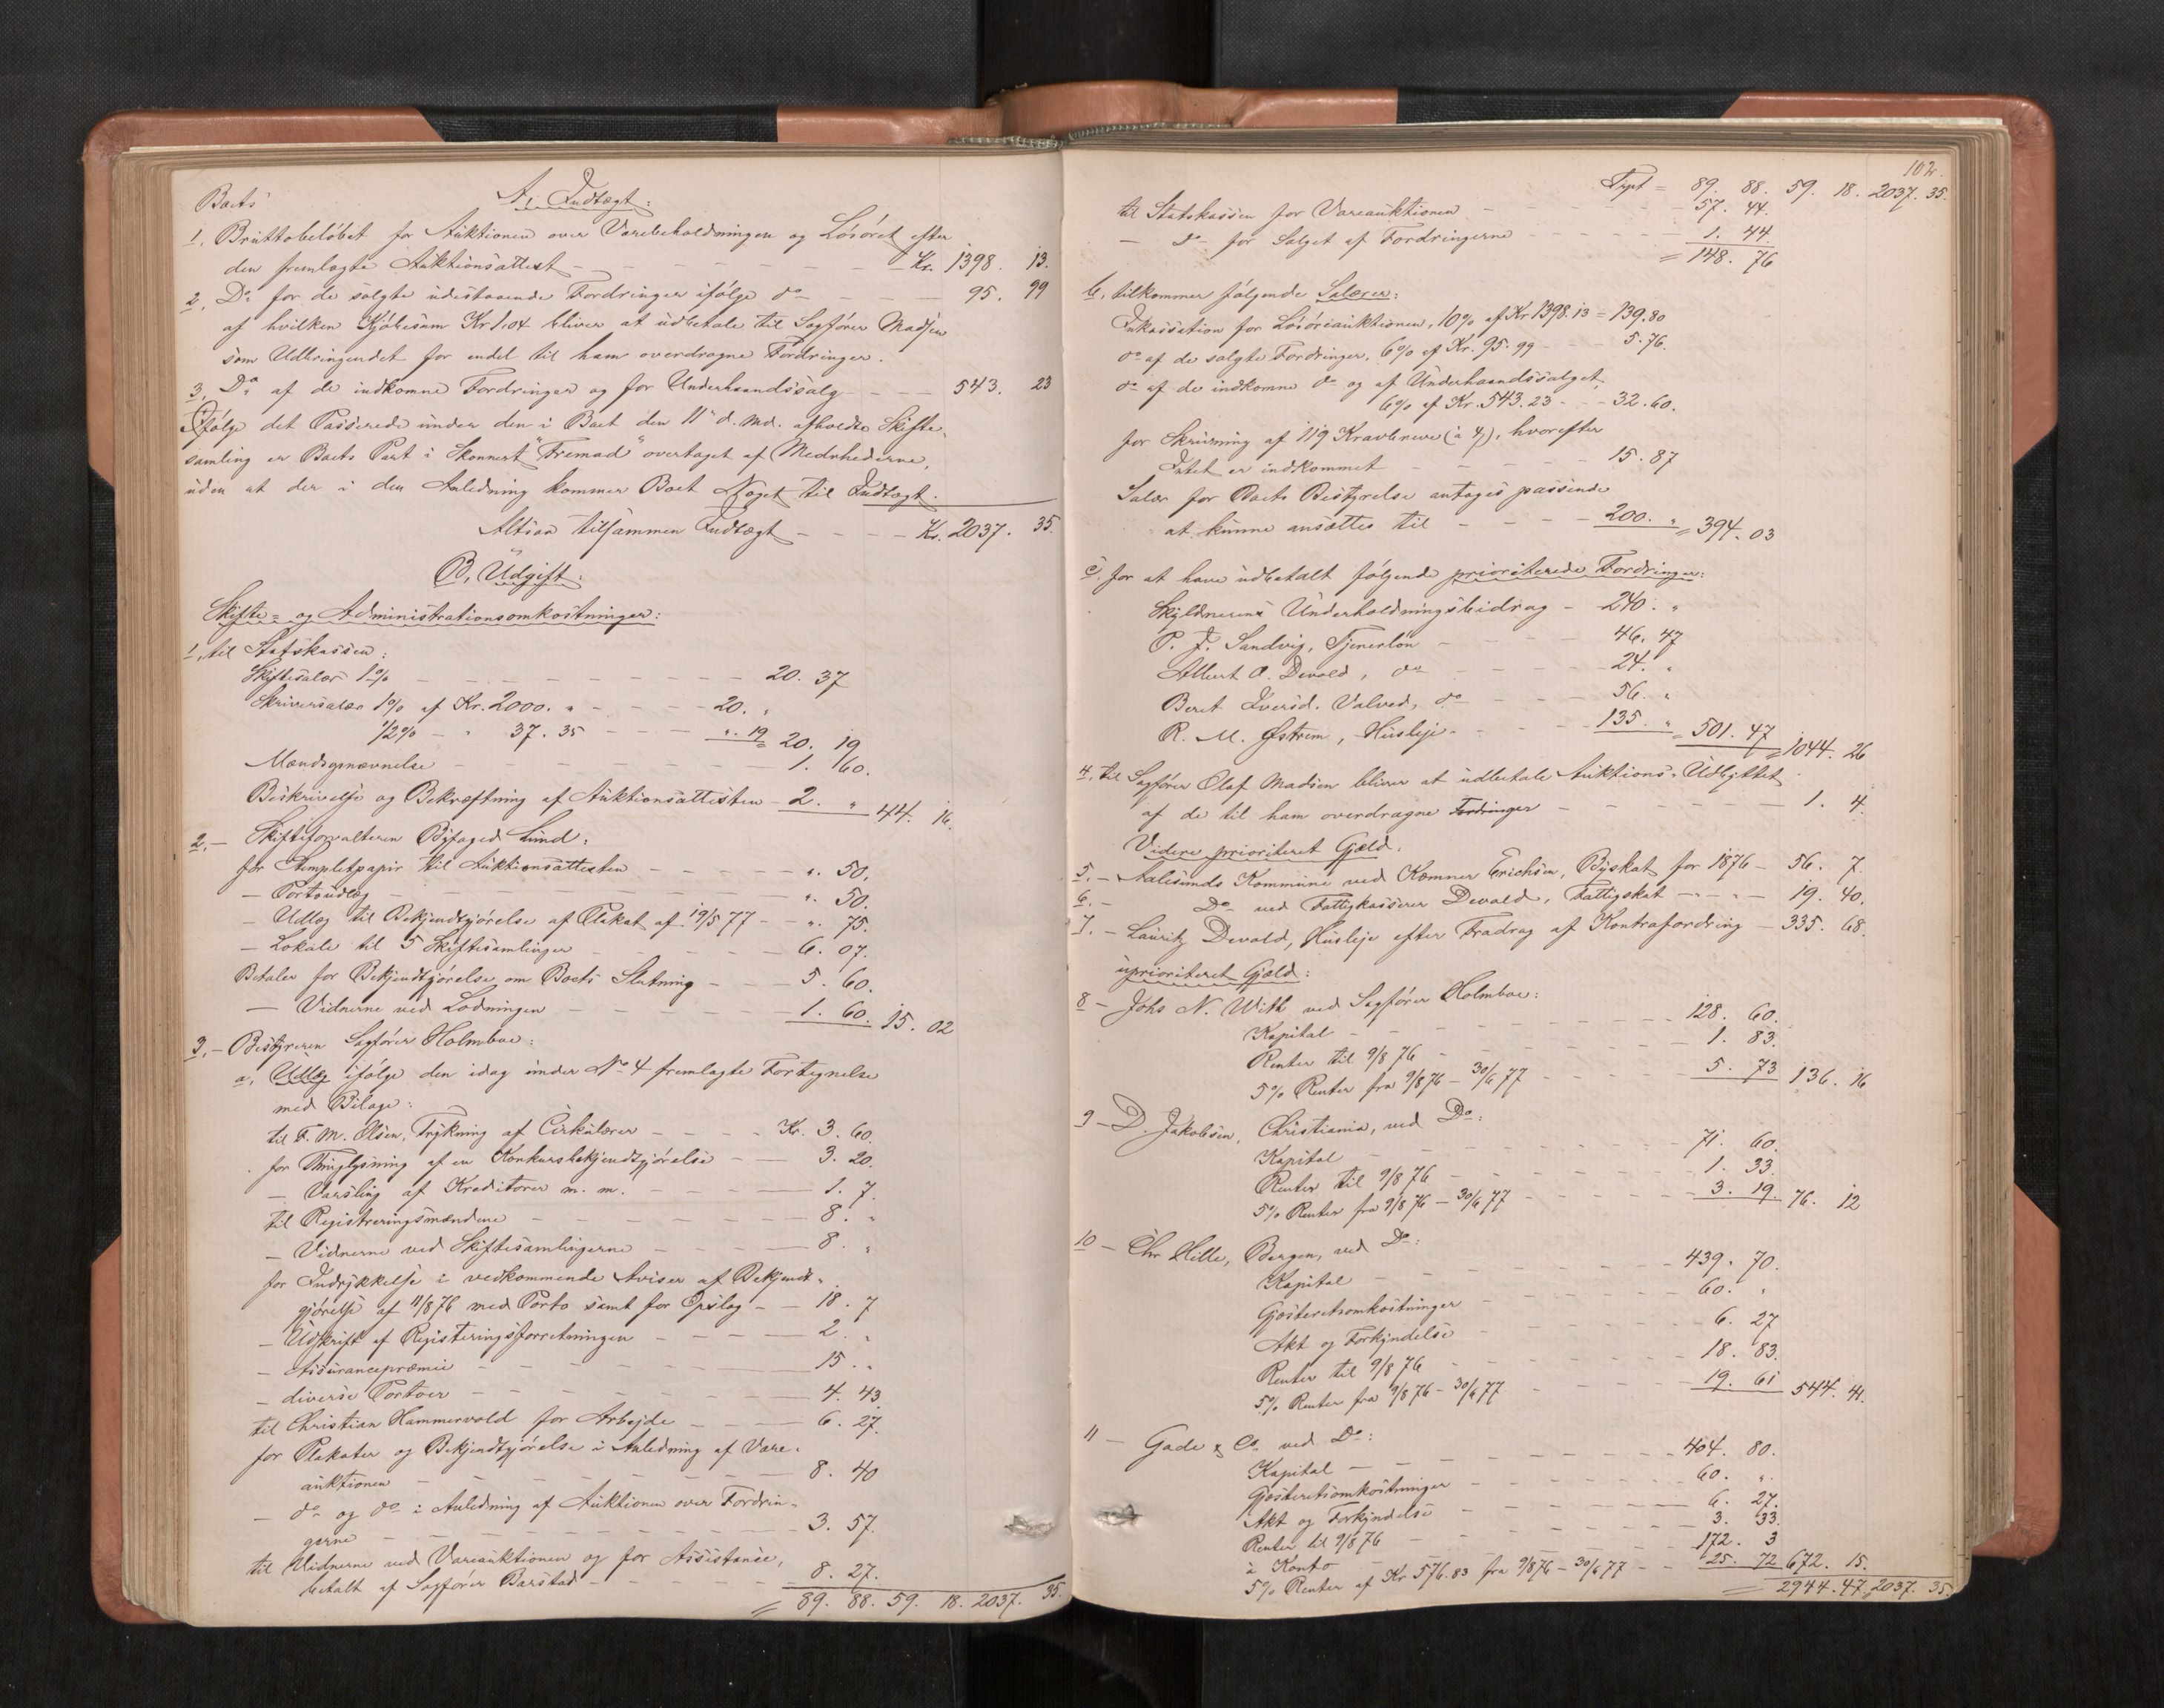 Boets
A, Indtægt:
1, Bruttobeløbet for Auktionen over Varebeholdningen og Løsøret efter
den fremlagte Auktionsattest - Kr. 1398. 13.
2, Do for de solgte udestaaende Fordringer ifølge do 95. 99
af hvilken Kjøbesum Kr 1.04 bliver at udbetale til Sagfører Madsen
som Udbringendet for endel til ham overdragne Fordringer.
3, Do af de indkomne Fordringer og for Underhaandssalg 543. 23
Ifølge det Passerede under den i Boet den 11te d. Md. afholdte Skifte-
samling er Boets Part i Skonnert "Fremad" overtaget af Medrhederne,
uden at der i den Anledning kommer Boet Noget til Indtægt.
Altsaa tilsammen Indtægt - Kr. 2037. 35.
B, Udgift:
Skifte- og Administrationsomkostninger:
1, til Statskassen:
Skiftesalær 1% 20. 37
Skriversalær 1% af Kr. 2000. " 20. "
1/2% - " 37. 35 ". 19 = 20. 19
Mændsopnævnelse 1. 60.
Beskrivelse og Bekræftning af Auktionsattesten - 2. " 44. 16.
2, - Skifteforvalteren Byfoged Lund:
for Stempletpapir til Auktionsattesten ". 50.
- Portoudlæg ". 50.
- Udlæg til Bekjendtgjørelse af Plakat af 19/5 77 ". 75.
- Lokale til 5 Skiftesamlinger 6. 07.
Betaler for Bekjendtgjørelse om Boets Slutning 5. 60.
- Vidnerne ved Lodningen 1. 60. 15. 02
3, - Bestyreren Sagfører Holmboe:
a, Udlæg ifølge den idag under No 4 fremlagte Fortegnelse
med Bilage:
til F. M. Olsen, Trykning af Cirkulærer Kr. 3. 60.
for Thinglysning af en Konkursbekjendtgjørelse 3. 20.
- Varsling af Kreditorer m. m. 1. 7.
til Registreringsmændene 8. "
- Vidnerne ved Skiftesamlingerne 8. "
for Indrykkelse i vedkommende Aviser af Bekjendt-
gjørelse af 11/8 76 med Porto samt for Opslag 18. 7
- Udskrift af Registeringsforretningen 2. "
- Assurancepræmie 15. "
- diverse Portoer 4. 43
til Christian Hammervold for Arbejde 6. 27.
for Plakater og Bekjendtgjørelse i Anledning af Vare-
auktionen 8. 40
- do og do i Anledning af Auktionen over Fordrin-
gerne 3. 57.
til Vidnerne ved Vareauktionen og for Assistance,
betalt af Sagfører Barstad 8. 27.
= 89. 88. 59. 18. 2037. 35.
102.
Trspt = 89. 88. 59. 18. 2037. 35.
til Statskassen for Vareauktionen 57. 44.
- do for Salget af Fordringerne 1. 44
= 148. 76
b, tilkommer følgende Salærer:
Inkassation for Løsøreauktionen, 10% af Kr 1398.13 = 139.80
do af de solgte Fordringer, 6% af Kr. 95.99 5.76.
do af de indkomne do og af Underhaandssalget,
6% af Kr. 543.23 32.60.
for Skrivning af 119 Kravbreve (à 4/), hvorefter
Intet er indkommet 15. 87
Salær for Boets Bestyrelse antages passende
at kunne ansættes til 200. " = 394. 03
c, for at have udbetalt følgende prioriterede Fordringer:
Skyldnerens Underholdningsbidrag - 240. "
P. J. Sandvig, Tjenerløn 46. 47
Albert A. Devold, do 24. "
Beret Iversd. Valved, do 56. "
R. M. Østrem, Husleje 135. " = 501. 47 = 1044. 26
4, til Sagfører Olaf Madsen bliver at udbetale Auktions-Udbyttet
af de til ham overdragne Fordringer 1. 4.
Videre prioriteret Gjæld.
5, - Aalesunds Kommune ved Kæmner Erichsen, Byskat for 1876 - 56. 7.
6, - Do ved Fattigkasserer Devold, Fattigskat - " - 19. 40.
7, - Lauritz Devold, Husleje efter Fradrag af Kontrafordring - 335. 68.
uprioriteret Gjæld:
8 - Johs N. With ved Sagfører Holmboe:
Kapital 128. 60.
Renter til 9/8 76 1. 83.
5% Renter fra 9/8 76 - 30/6 77 5. 73 136. 16
9 - D. Jakobsen, Christiania, ved Do:
Kapital 71. 60.
Renter til 9/8 76 1. 33.
5% Renter fra 9/8 76 - 30/6 77 3. 19. 76. 12
10 - Chr Hille, Bergen, ved Do:
Kapital 439. 70.
Gjesteretsomkostninger 60. "
Akt og Forkyndelse 6. 27
Renter til 9/8 76 18. 83.
5% Renter fra 9/8 76 - 30/6 77 19. 61 544. 41.
11 - Gade & Co ved Do:
Kapital 404. 80.
Gjesteretsomkostninger 60. "
Akt og Forkyndelse 6. 27.
Renter til 9/8 76 3. 33.
à Konto 172. 3
5% Renter af Kr 576.83 fra 9/8 76 - 30/6 77 25. 72 672. 15.
= 2944. 47. 2037. 35.